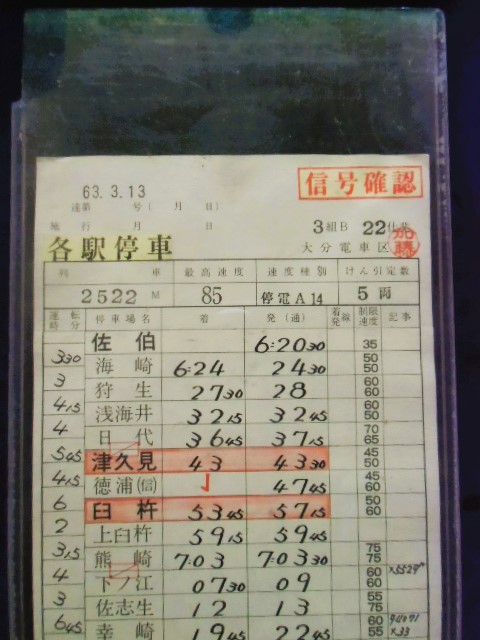 63.3.13
信号確認
達第 号( 月 日)
施行 月 日
3組B 22仕業
各駅停車
大分電車区
列車 最高速度 速度種別 けん引定数
2522M 85 停電A14 5両
運転時分 停車場名 着 発(通) 着発線 制限速度 記事
佐伯 6:20 30 35
3 30
海崎 6:24 24 30 50 50
3
狩生 27 30 28 60 60
4 15
浅海井 32 15 32 45 50 60
4
日代 36 45 37 15 70 65
5 45
津久見 43 43 30 45 50
4 15
徳浦(信) 47 45 45 60
6
臼杵 53 45 57 15 50 60
2
上臼杵 59 15 59 45
3 15
熊崎 7:03 7:03 30 75 75
4
下ノ江 07 30 09 60 60
3
佐志生 12 13 55 75
6 45
幸崎 19 45 22 45 60 55